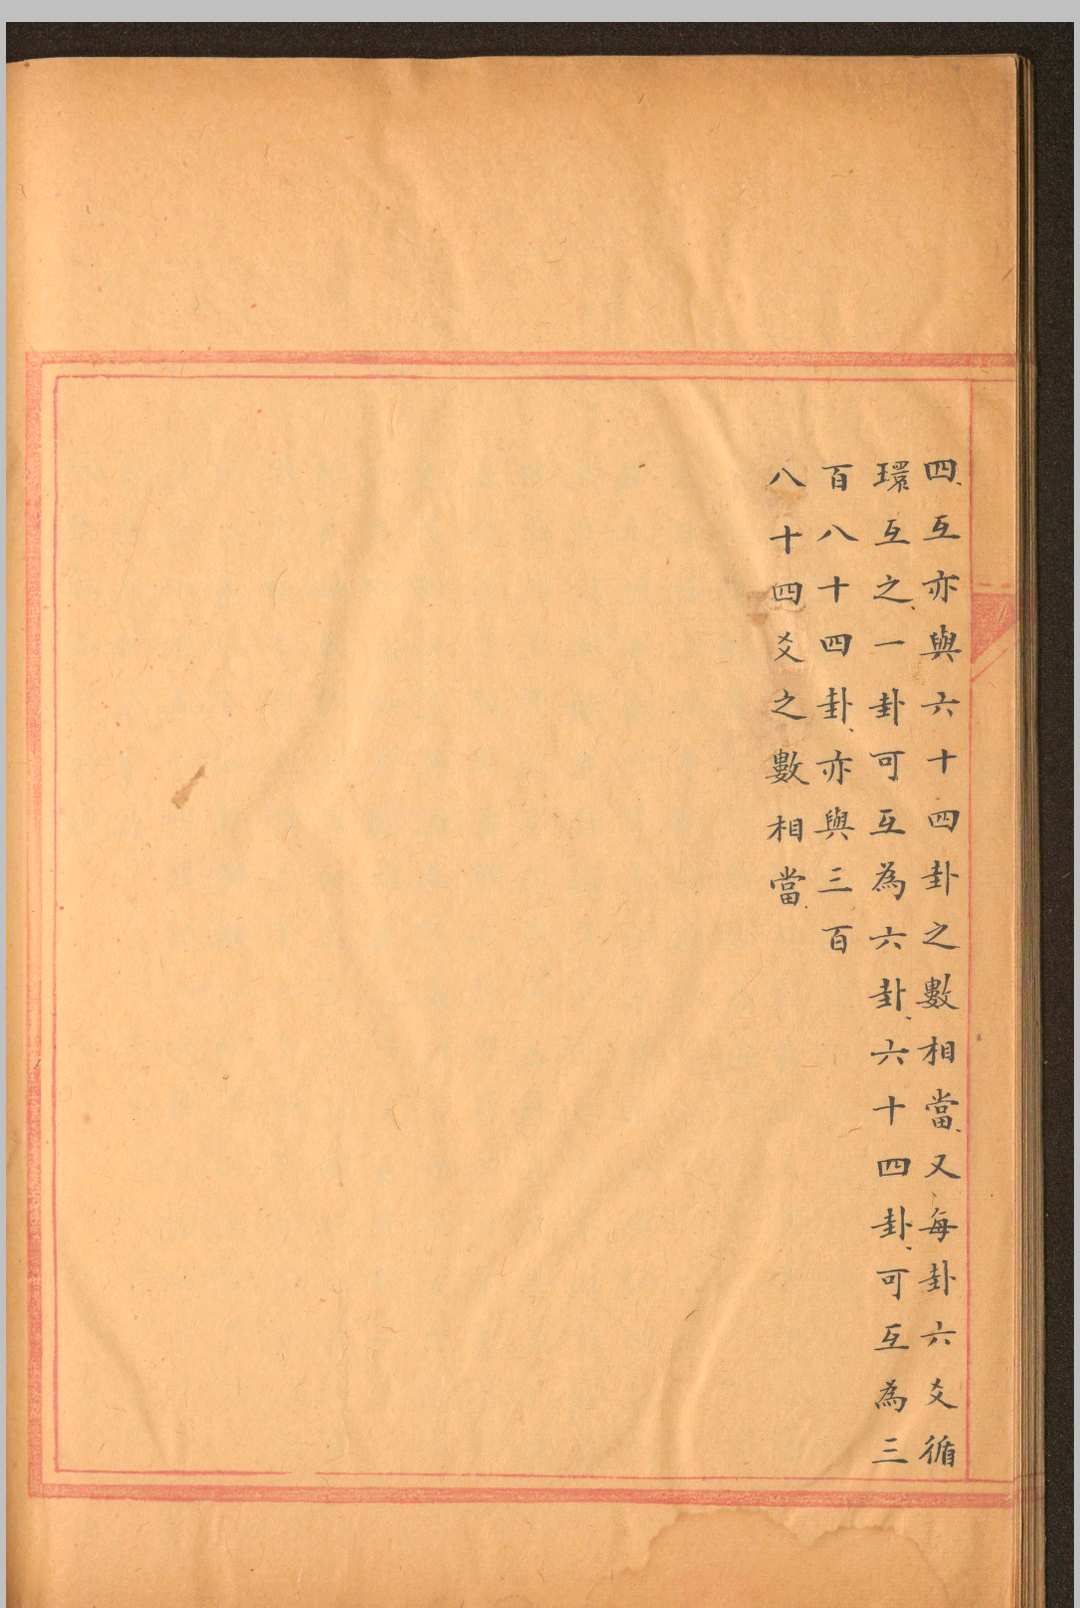 四、互亦與六十四卦之數相當、又每卦六爻循
環互之、一卦可互為六卦、六十四卦、可互為三
百八十四卦、亦與三百
八十四爻之數相當、